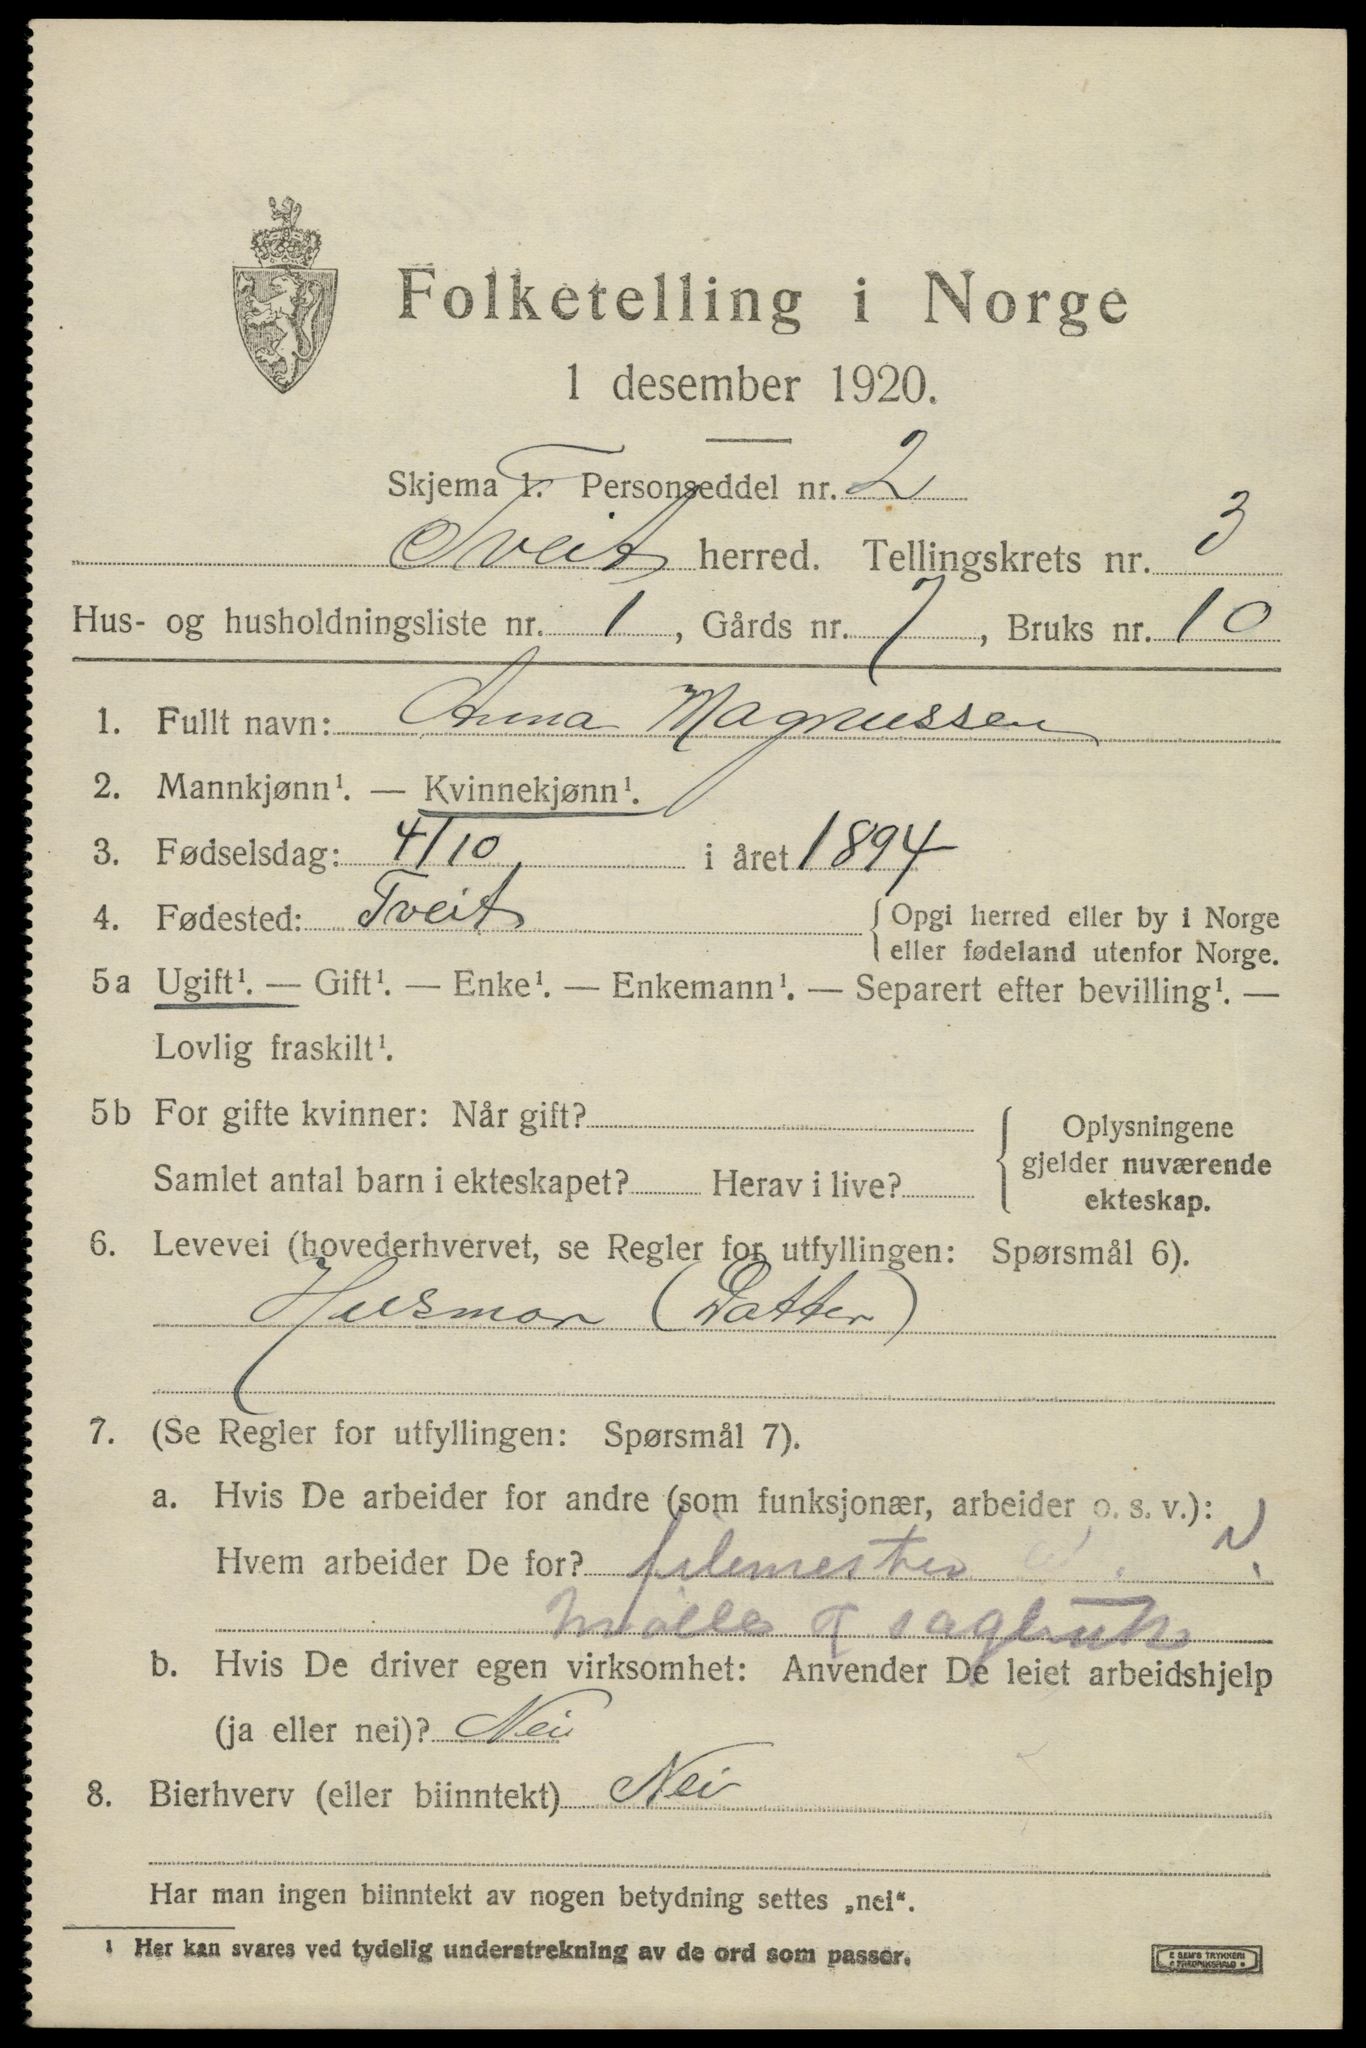 Folketelling i Norge
1 desember 1920.
Skjema 1. Personseddel nr. 2
Tveit herred. Tellingskrets nr. 3
Hus- og husholdningsliste nr. 1, Gårds nr. 7, Bruks nr. 10
1. Fullt navn: Anna Magnussen
2. Mannkjønn¹. — Kvinnekjønn¹.
3. Fødselsdag: 4/10 i året 1894
4. Fødested: Tveit {Opgi herred eller by i Norge
eller fødeland utenfor Norge.
5a Ugift¹. — Gift¹. — Enke¹. — Enkemann¹. — Separert efter bevilling¹. —
Lovlig fraskilt¹.
5b For gifte kvinner: Når gift?
Samlet antal barn i ekteskapet? Herav i live?
{Oplysningene
gjelder nuværende
ekteskap.
6. Levevei (hovederhvervet, se Regler for utfyllingen: Spørsmål 6).
Husmor (Datter)
7. (Se Regler for utfyllingen: Spørsmål 7).
a. Hvis De arbeider for andre (som funksjonær, arbeider o. s. v.):
Hvem arbeider De for?
Mølle & sagbruk
b. Hvis De driver egen virksomhet: Anvender De leiet arbeidshjelp
(ja eller nei)? Nei
8. Bierhverv (eller biinntekt) Nei
Har man ingen biinntekt av nogen betydning settes „nei“.
¹ Her kan svares ved tydelig understrekning av de ord som passer.
E SEM'S TRYKKERI
FREDRIKSHALD